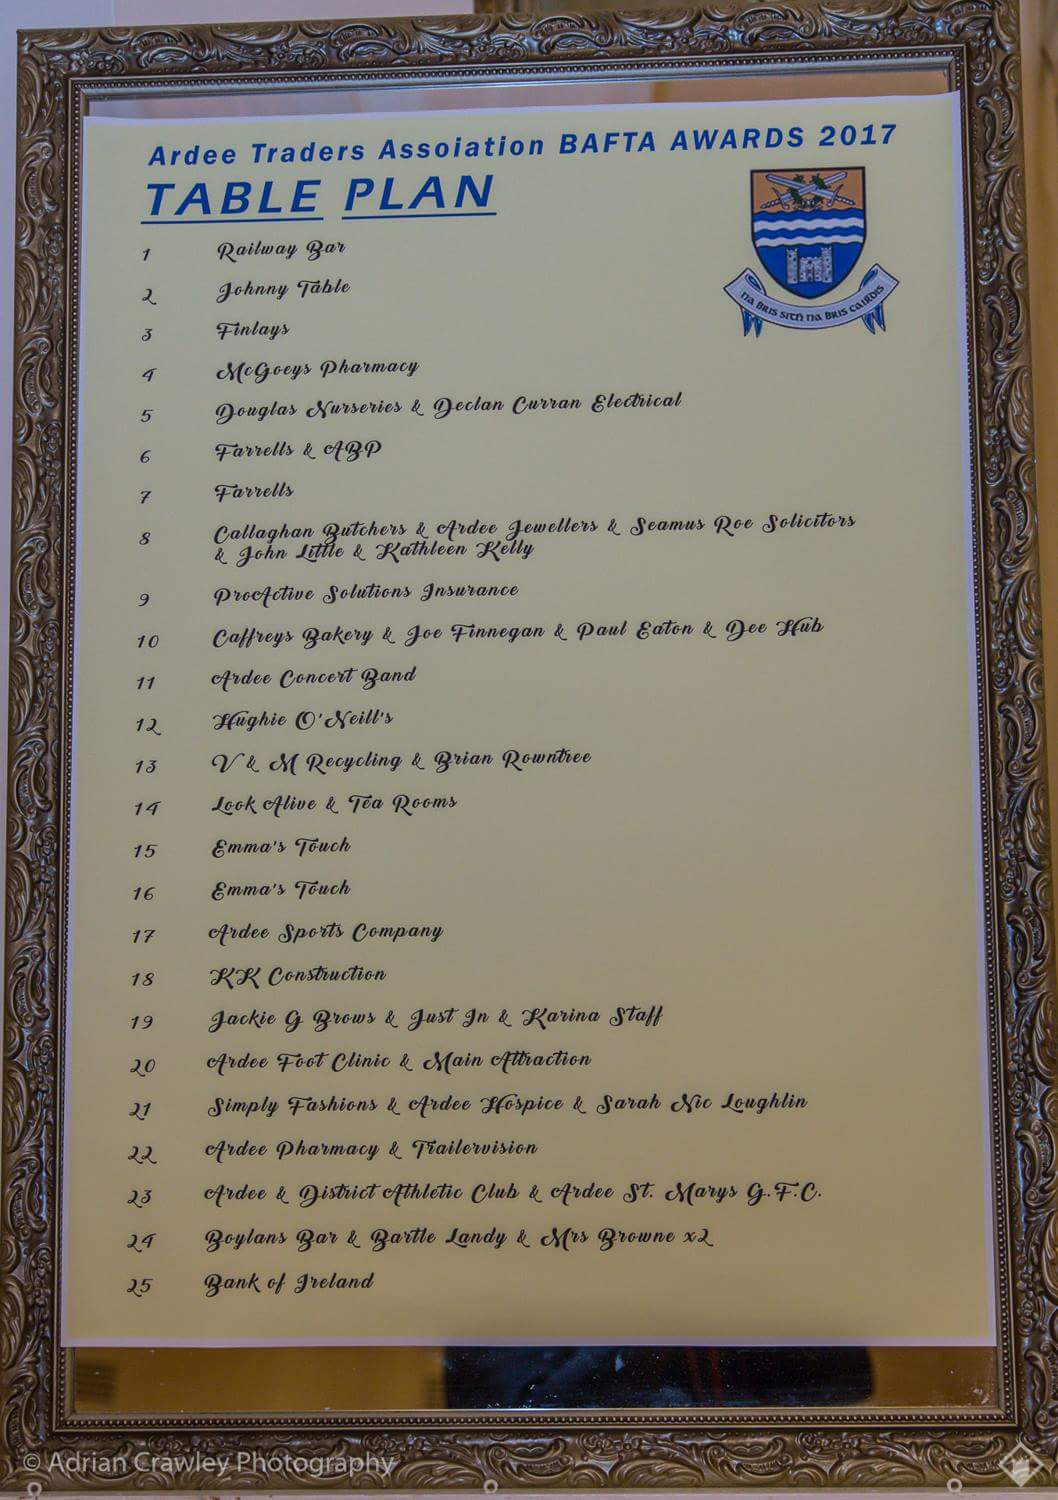 Ardee Traders Assoiation BAFTA AWARDS 2017
TABLE PLAN
NA BRIS SITH NA BRIS CAIRDIS
1 Railway Bar
2 Johnny Table
3 Finlays
4 McGoeys Pharmacy
5 Douglas Nurseries & Declan Curran Electrical
6 Farrells & ABP
7 Farrells
8 Callaghan Butchers & Ardee Jewellers & Seamus Roe Solicitors
& John Little & Kathleen Kelly
9 ProActive Solutions Insurance
10 Caffreys Bakery & Joe Finnegan & Paul Eaton & Dee Hub
11 Ardee Concert Band
12 Hughie O'Neill's
13 V & M Recycling & Brian Rowntree
14 Look Alive & Tea Rooms
15 Emma's Touch
16 Emma's Touch
17 Ardee Sports Company
18 KK Construction
19 Jackie G Brows & Just In & Karina Staff
20 Ardee Foot Clinic & Main Attraction
21 Simply Fashions & Ardee Hospice & Sarah Nic Loughlin
22 Ardee Pharmacy & Trailervision
23 Ardee & District Athletic Club & Ardee St. Marys G.F.C.
24 Boylans Bar & Bartle Landy & Mrs Browne x2
25 Bank of Ireland
© Adrian Crawley Photography